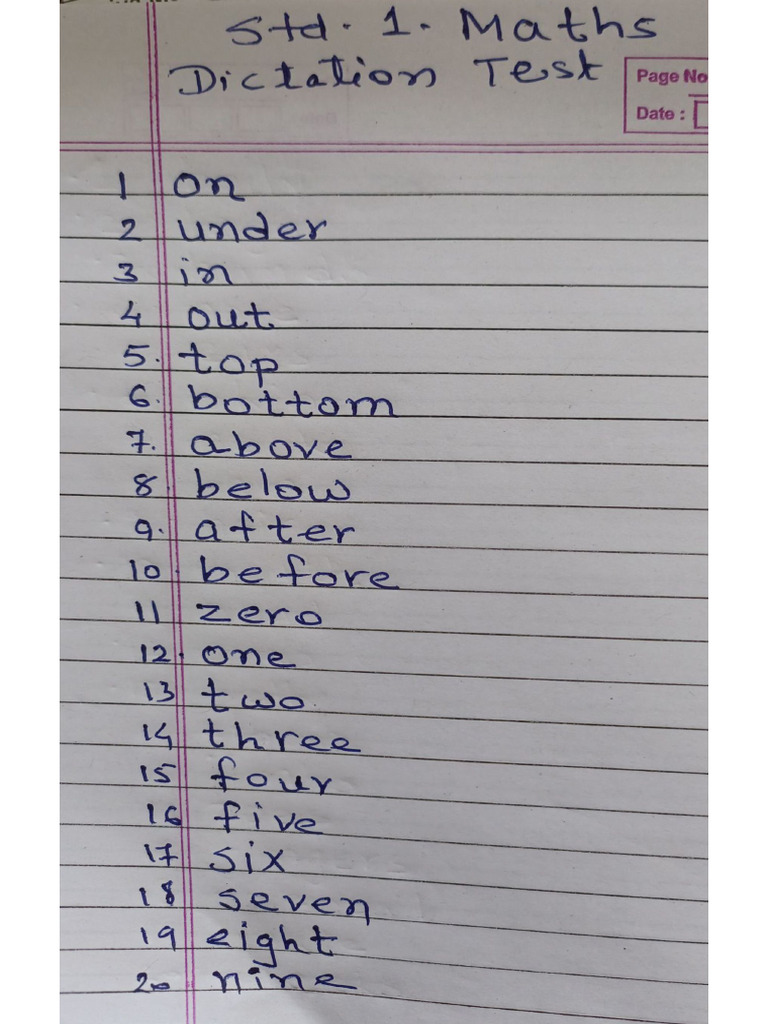 Std. 1. Maths
Dictation Test
Page No
Date :
1 on
2 under
3 in
4 out
5. top
6. bottom
7. above
8 below
9. after
10. before
11 zero
12. one
13 two
14 three
15 four
16 five
17 six
18 seven
19 eight
20 nine